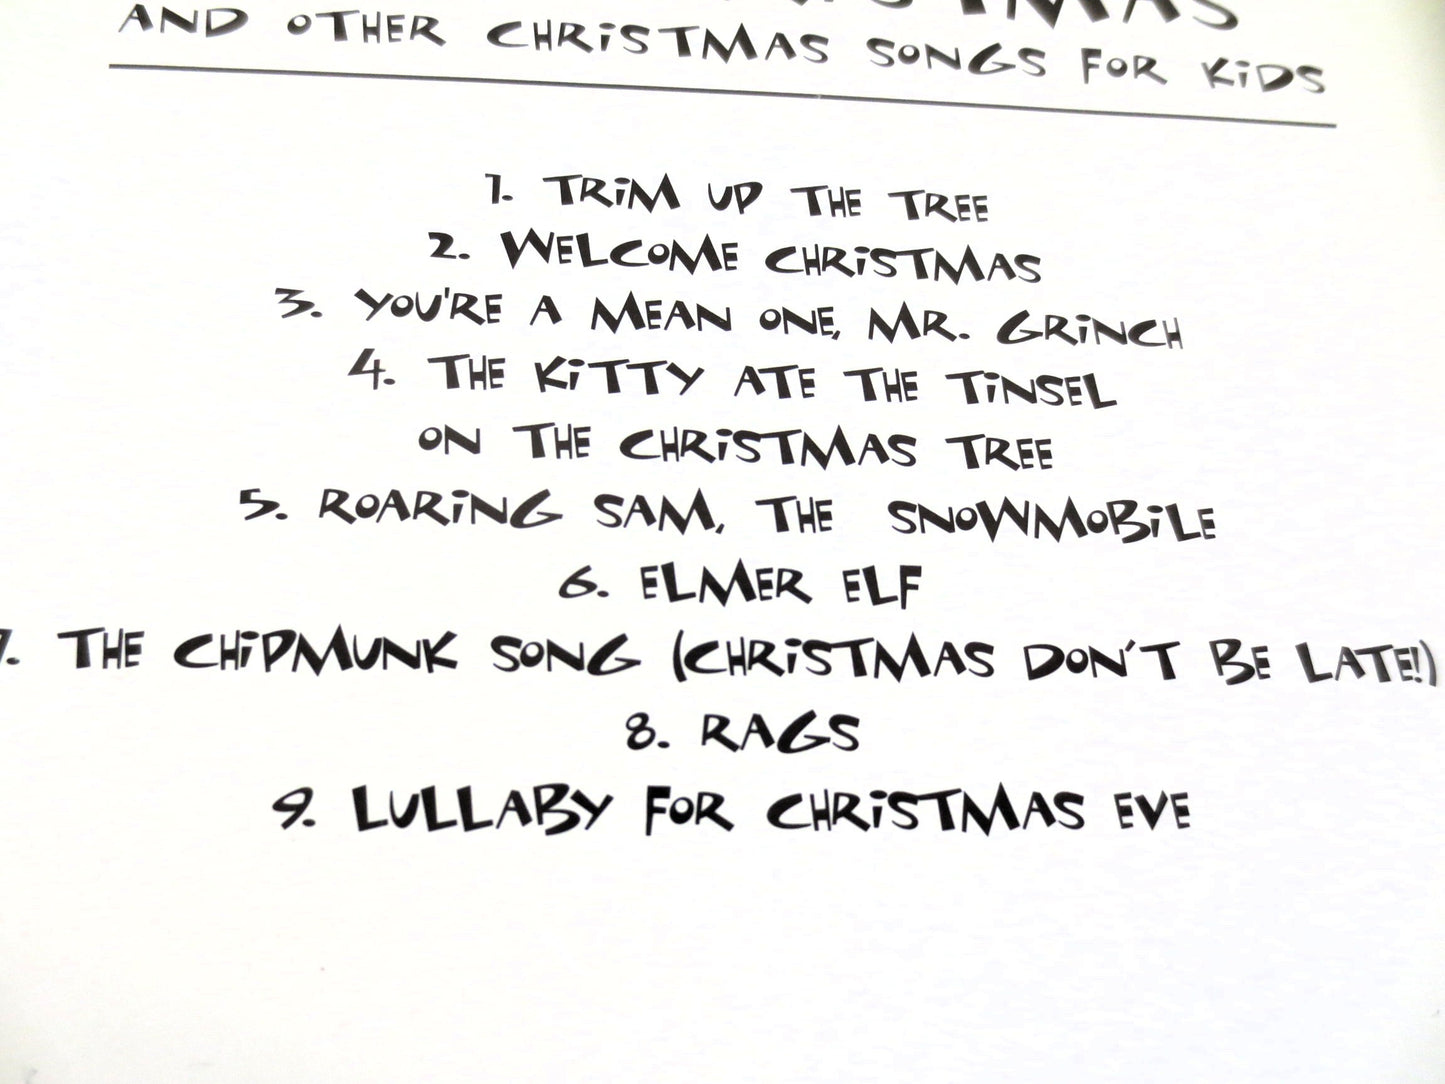 AND OTHER CHRISTMAS SONGS FOR KIDS
1. TRIM UP THE TREE
2. WELCOME CHRISTMAS
3. YOU'RE A MEAN ONE, MR. GRINCH
4. THE KITTY ATE THE TINSEL
ON THE CHRISTMAS TREE
5. ROARING SAM, THE SNOWMOBILE
6. ELMER ELF
7. THE CHIPMUNK SONG (CHRISTMAS DON'T BE LATE!)
8. RAGS
9. LULLABY FOR CHRISTMAS EVE